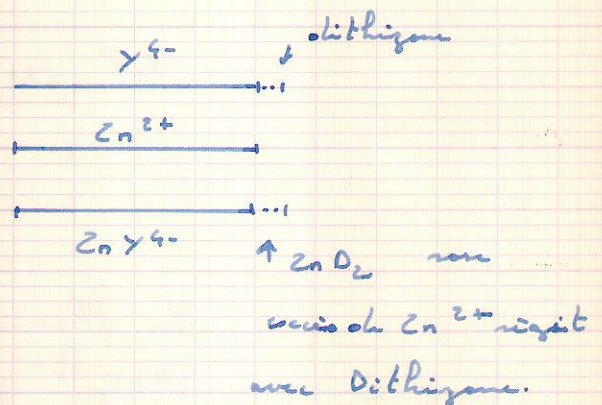 dithizone
y4-
Zn2+
Zny4-
ZnD2 rose
excès de Zn2+ réagit
avec Dithizone.